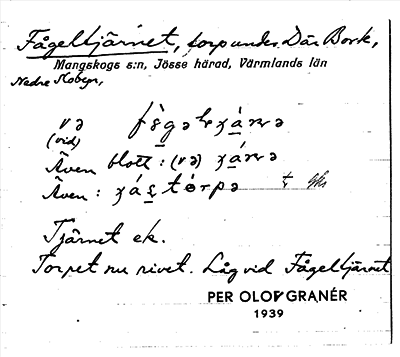 Fågeltjärnet, torp under Där Bork,
Mangskogs s:n, Jösse härad, Värmlands län
Nedre Skobyn,
və
(vid)
Även blott: (və)
Även:
Tjärnet ek.
Torpet nu rivet. Låg vid Fågeltjärnet
PER OLOF GRANÉR
1939